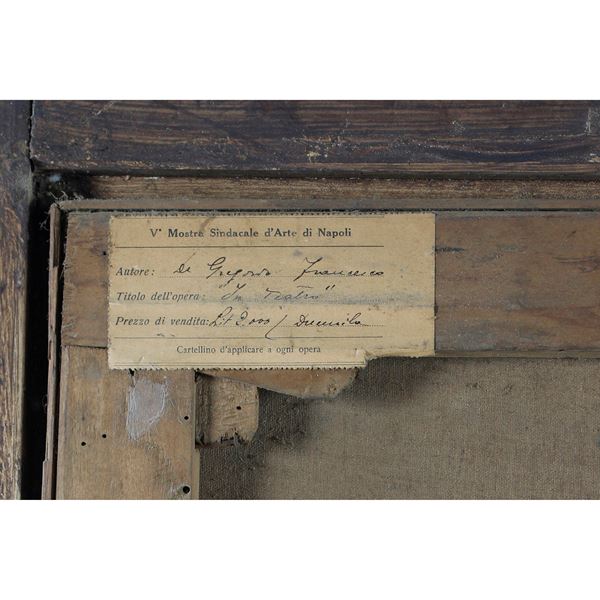 Vª Mostra Sindacale d'Arte di Napoli
Autore: de Gregorio Francesco
Titolo dell'opera: "In Teatro"
Prezzo di vendita: Lit 2.000 / Duemila
Cartellino d'applicare a ogni opera